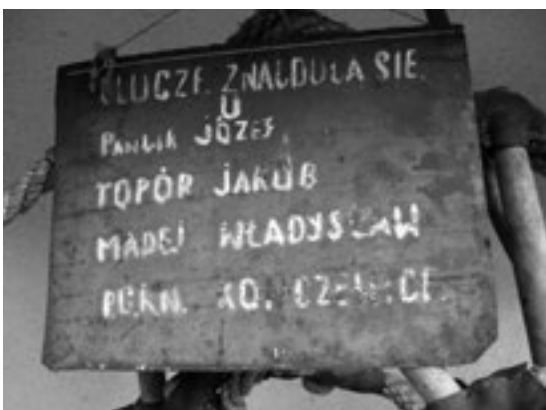 KLUCZE ZNAJDUJĄ SIĘ
U
PAWLIK JÓZEF
TOPÓR JAKUB
MADEJ WŁADYSŁAW